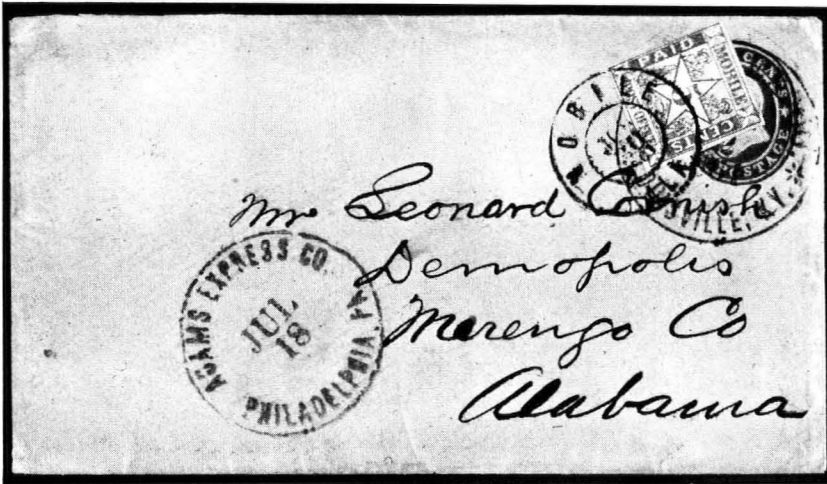 PAID
MOBILE
CENTS
CENTS
POSTAGE
MOBILE
SVILLE, KY.
Mr Leonard Cornish
Demopolis
Marengo Co
Alabama
ADAMS EXPRESS CO.
JUL
18
PHILADELPHIA, PA